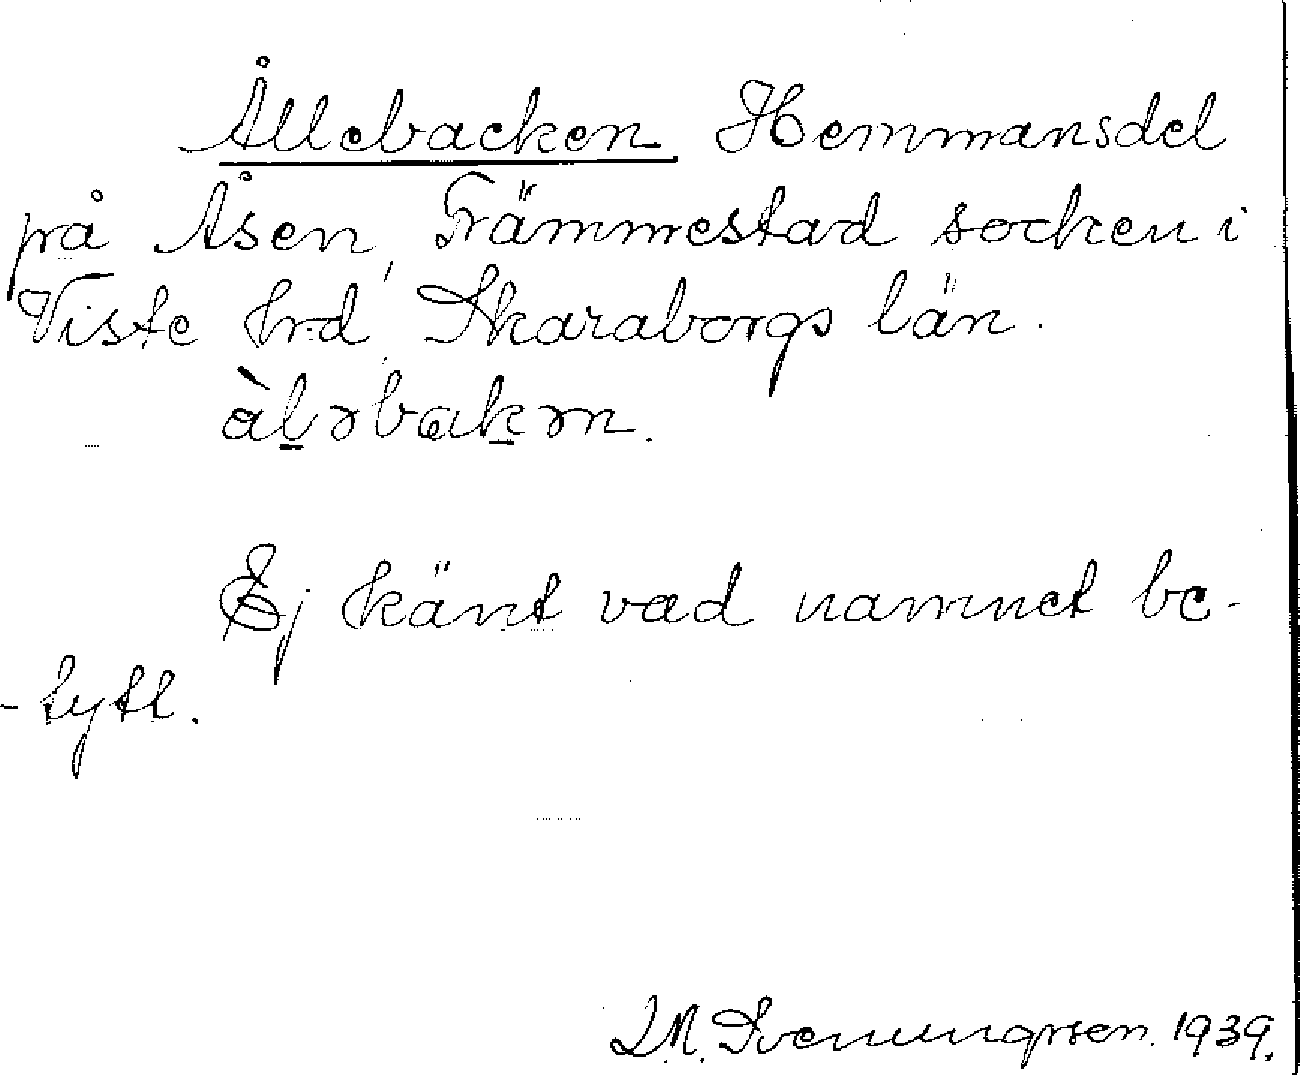 Ållebacken Hemmansdel
på Åsen, Främmestad socken i
Viste hrd, Skaraborgs län.
àl̲əbak̲ən.
Ej känt vad namnet be-
-tytt.
L.M. Svenungsson. 1939.